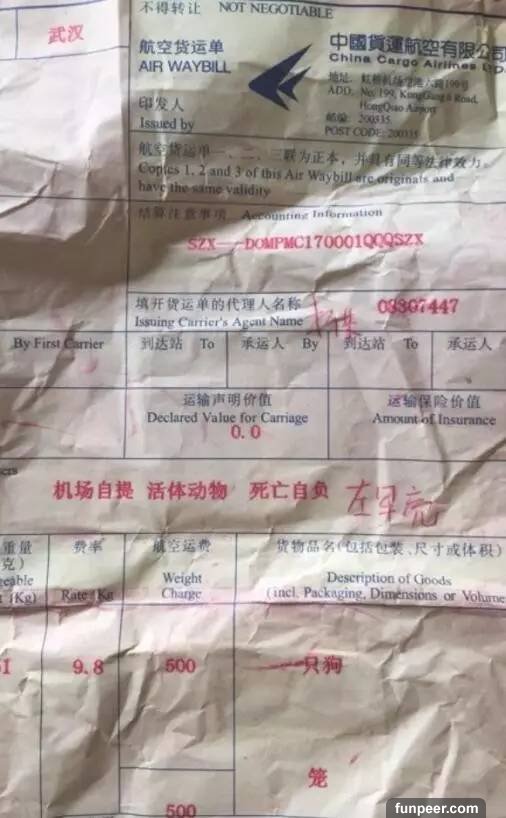 武汉
不得转让 NOT NEGOTIABLE
航空货运单
AIR WAYBILL
中國貨運航空有限公司
China Cargo Airlines LTD.
地址: 虹桥机场空港六路199号
ADD: No. 199, KongGang 6 Road,
HongQiao Airport
邮编: 200335
POST CODE: 200335
印发人
Issued by
航空货运单一、二、三联为正本，并具有同等法律效力。
Copies 1, 2 and 3 of this Air Waybill are originals and
have the same validity
结算注意事项 Accounting Information
SZX---DOMPMC170001QQQSZX
填开货运单的代理人名称
Issuing Carrier's Agent Name
08307447
By First Carrier
到达站 To
承运人 By
到达站 To
承运人
运输声明价值
Declared Value for Carriage
0.0
运输保险价值
Amount of Insurance
机场自提 活体动物 死亡自负
重量
克)
geable
t (Kg)
费率
Rate/Kg
航空运费
Weight
Charge
货物品名(包括包装、尺寸或体积)
Description of Goods
(incl. Packaging, Dimensions or Volume
9.8
500
一只狗
笼
500
funpeer.com